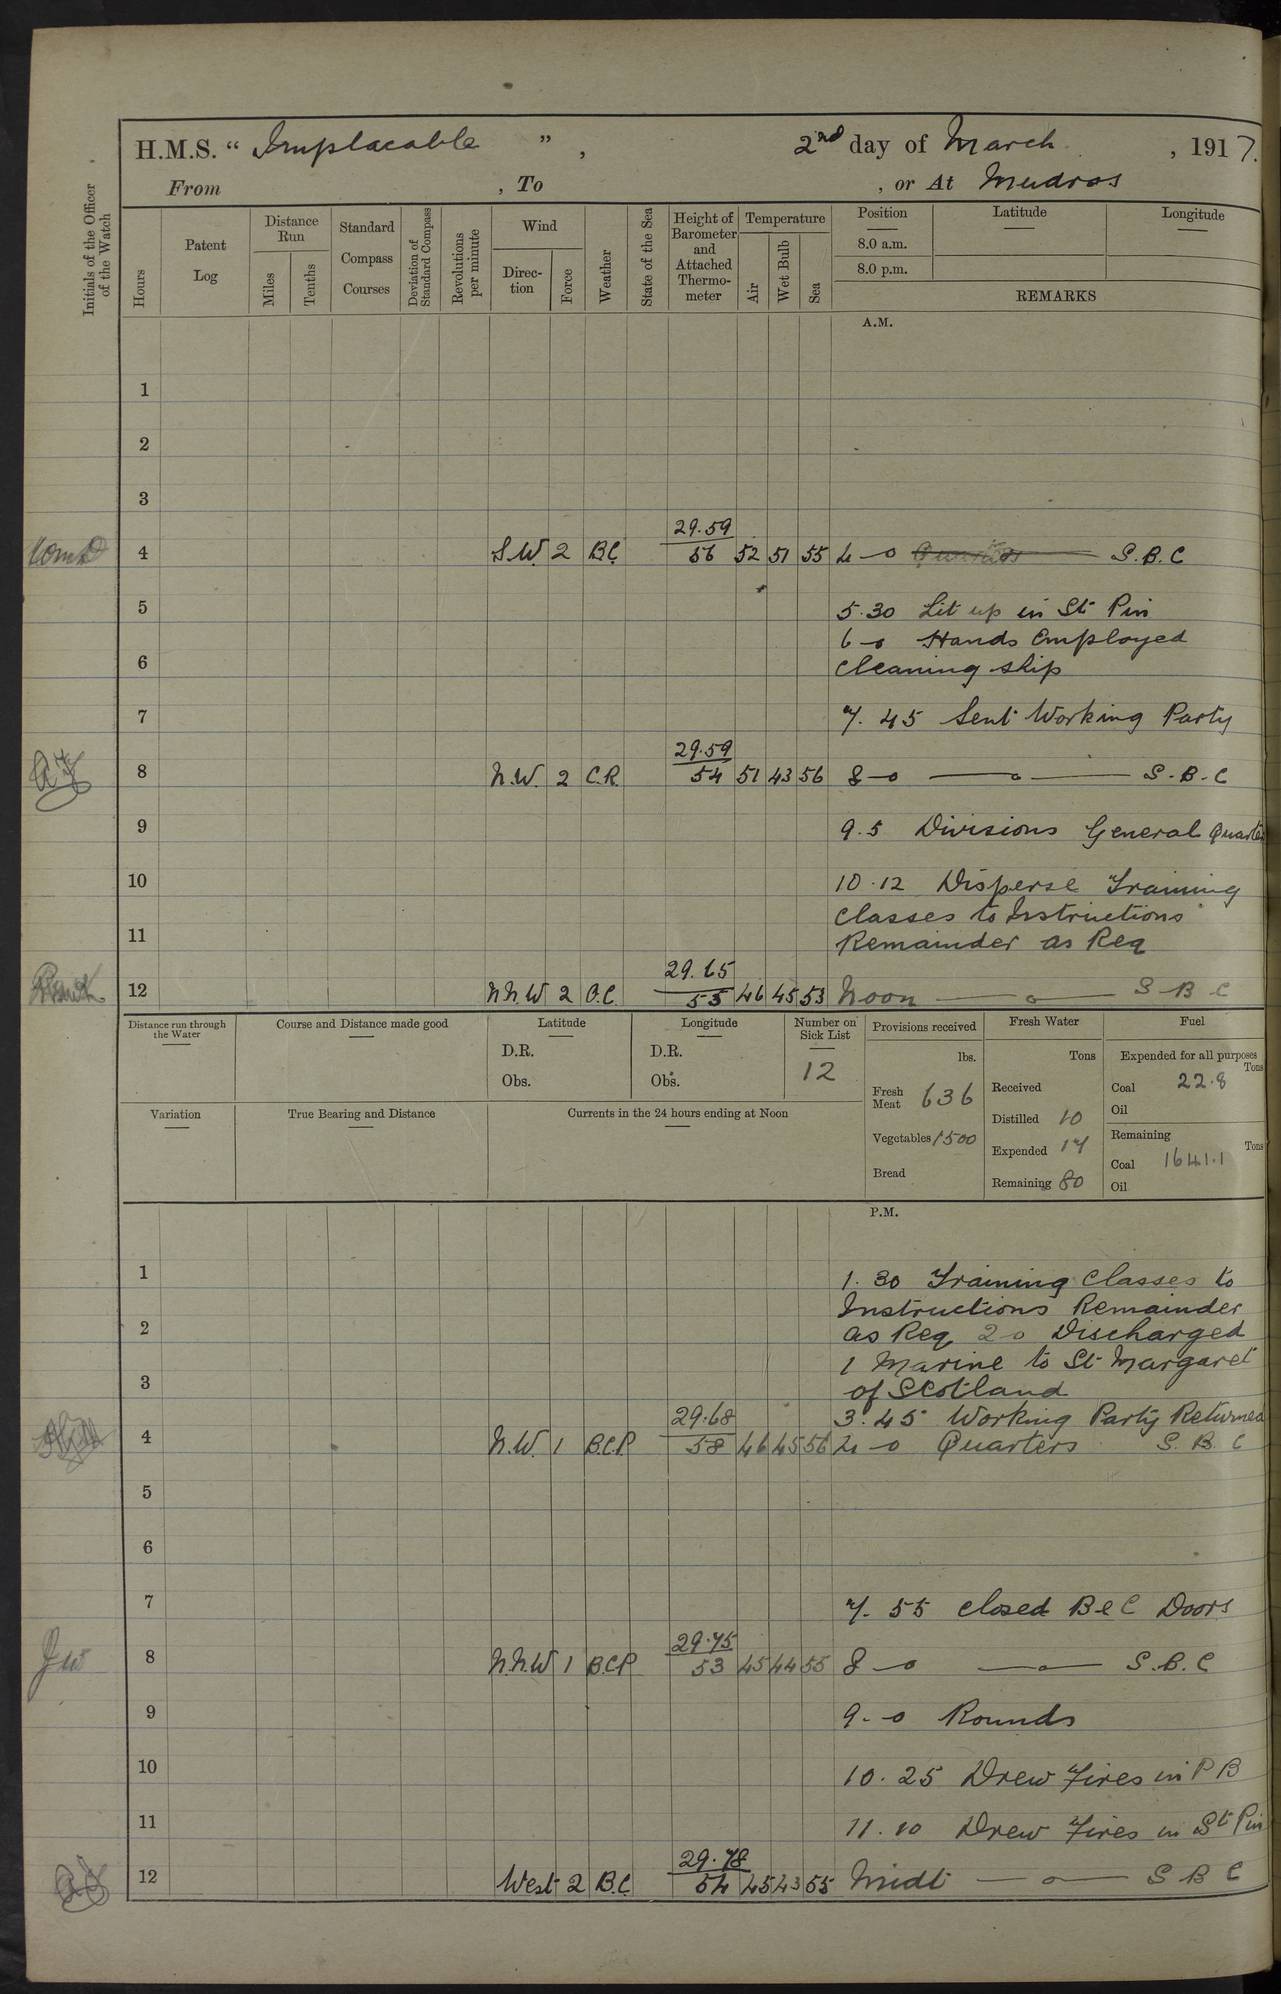 H.M.S. “ Implacable ” , 2nd day of March , 1917.
From , To , or At Mudros
Initials of the Officer of the Watch
Hours
Patent Log
Distance Run
Miles
Tenths
Standard Compass Courses
Deviation of Standard Compass
Revolutions per minute
Wind
Direction
Force
Weather
State of the Sea
Height of Barometer and Attached Thermometer
Temperature
Air
Wet Bulb
Sea
Position
8.0 a.m.
8.0 p.m.
Latitude
Longitude
REMARKS
A.M.
1
2
3
29.59
4 S.W. 2 B.C. 56 52 51 55 4-0 Quarters S.B.C
5 5.30 Lit up in St Pin
6-0 Hands Employed
6 Cleaning ship
7 7.45 Sent Working Party
29.59
8 N.W. 2 C.R. 54 51 43 56 8-0 —o— S.B.C
9 9.5 Divisions General Quarters
10 10.12 Disperse Training
Classes to Instructions
11 Remainder as Req
29.65
12 N.N.W 2 O.C. 55 46 45 53 Noon —o— S B C
Distance run through the Water
Course and Distance made good
Latitude
D.R.
Obs.
Longitude
D.R.
Obs.
Number on Sick List
12
Provisions received
lbs.
Fresh Meat 636
Vegetables 1500
Bread
Fresh Water
Tons
Received
Distilled 10
Expended 17
Remaining 80
Fuel
Expended for all purposes
Tons
Coal 22.8
Oil
Remaining
Tons
Coal 1641.1
Oil
Variation
True Bearing and Distance
Currents in the 24 hours ending at Noon
P.M.
1 1.30 Training Classes to
Instructions Remainder
2 as Req 2-0 Discharged
1 Marine to St Margaret
3 of Scotland
29.68 3.45 Working Party Returned
4 N.W. 1 B.C.P. 58 46 45 56 4-0 Quarters S.B.C
5
6
7 7.55 Closed B & C Doors
29.75
8 N.N.W 1 B.C.P 53 45 44 55 8-0 —o— S.B.C
9 9-0 Rounds
10 10.25 Drew Fires in P B
11 11.10 Drew Fires in St Pin
29.78
12 West 2 B.C. 54 45 43 55 Midt —o— S B C